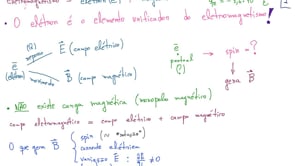 • O elétron é o elemento unificador do eletromagnetismo!
repouso → E⃗ (campo elétrico)
ē
(elétron) movimento → B⃗ (campo magnético)
ē → spin = ?
pontual (?)
gera B⃗
• NÃO existe carga magnética (monopolo magnético)
campo eletromagnético = campo elétrico + campo magnético
O que gera B⃗ { spin (≈ "rotação")
corrente elétrica
variação E⃗ : ≠ 0